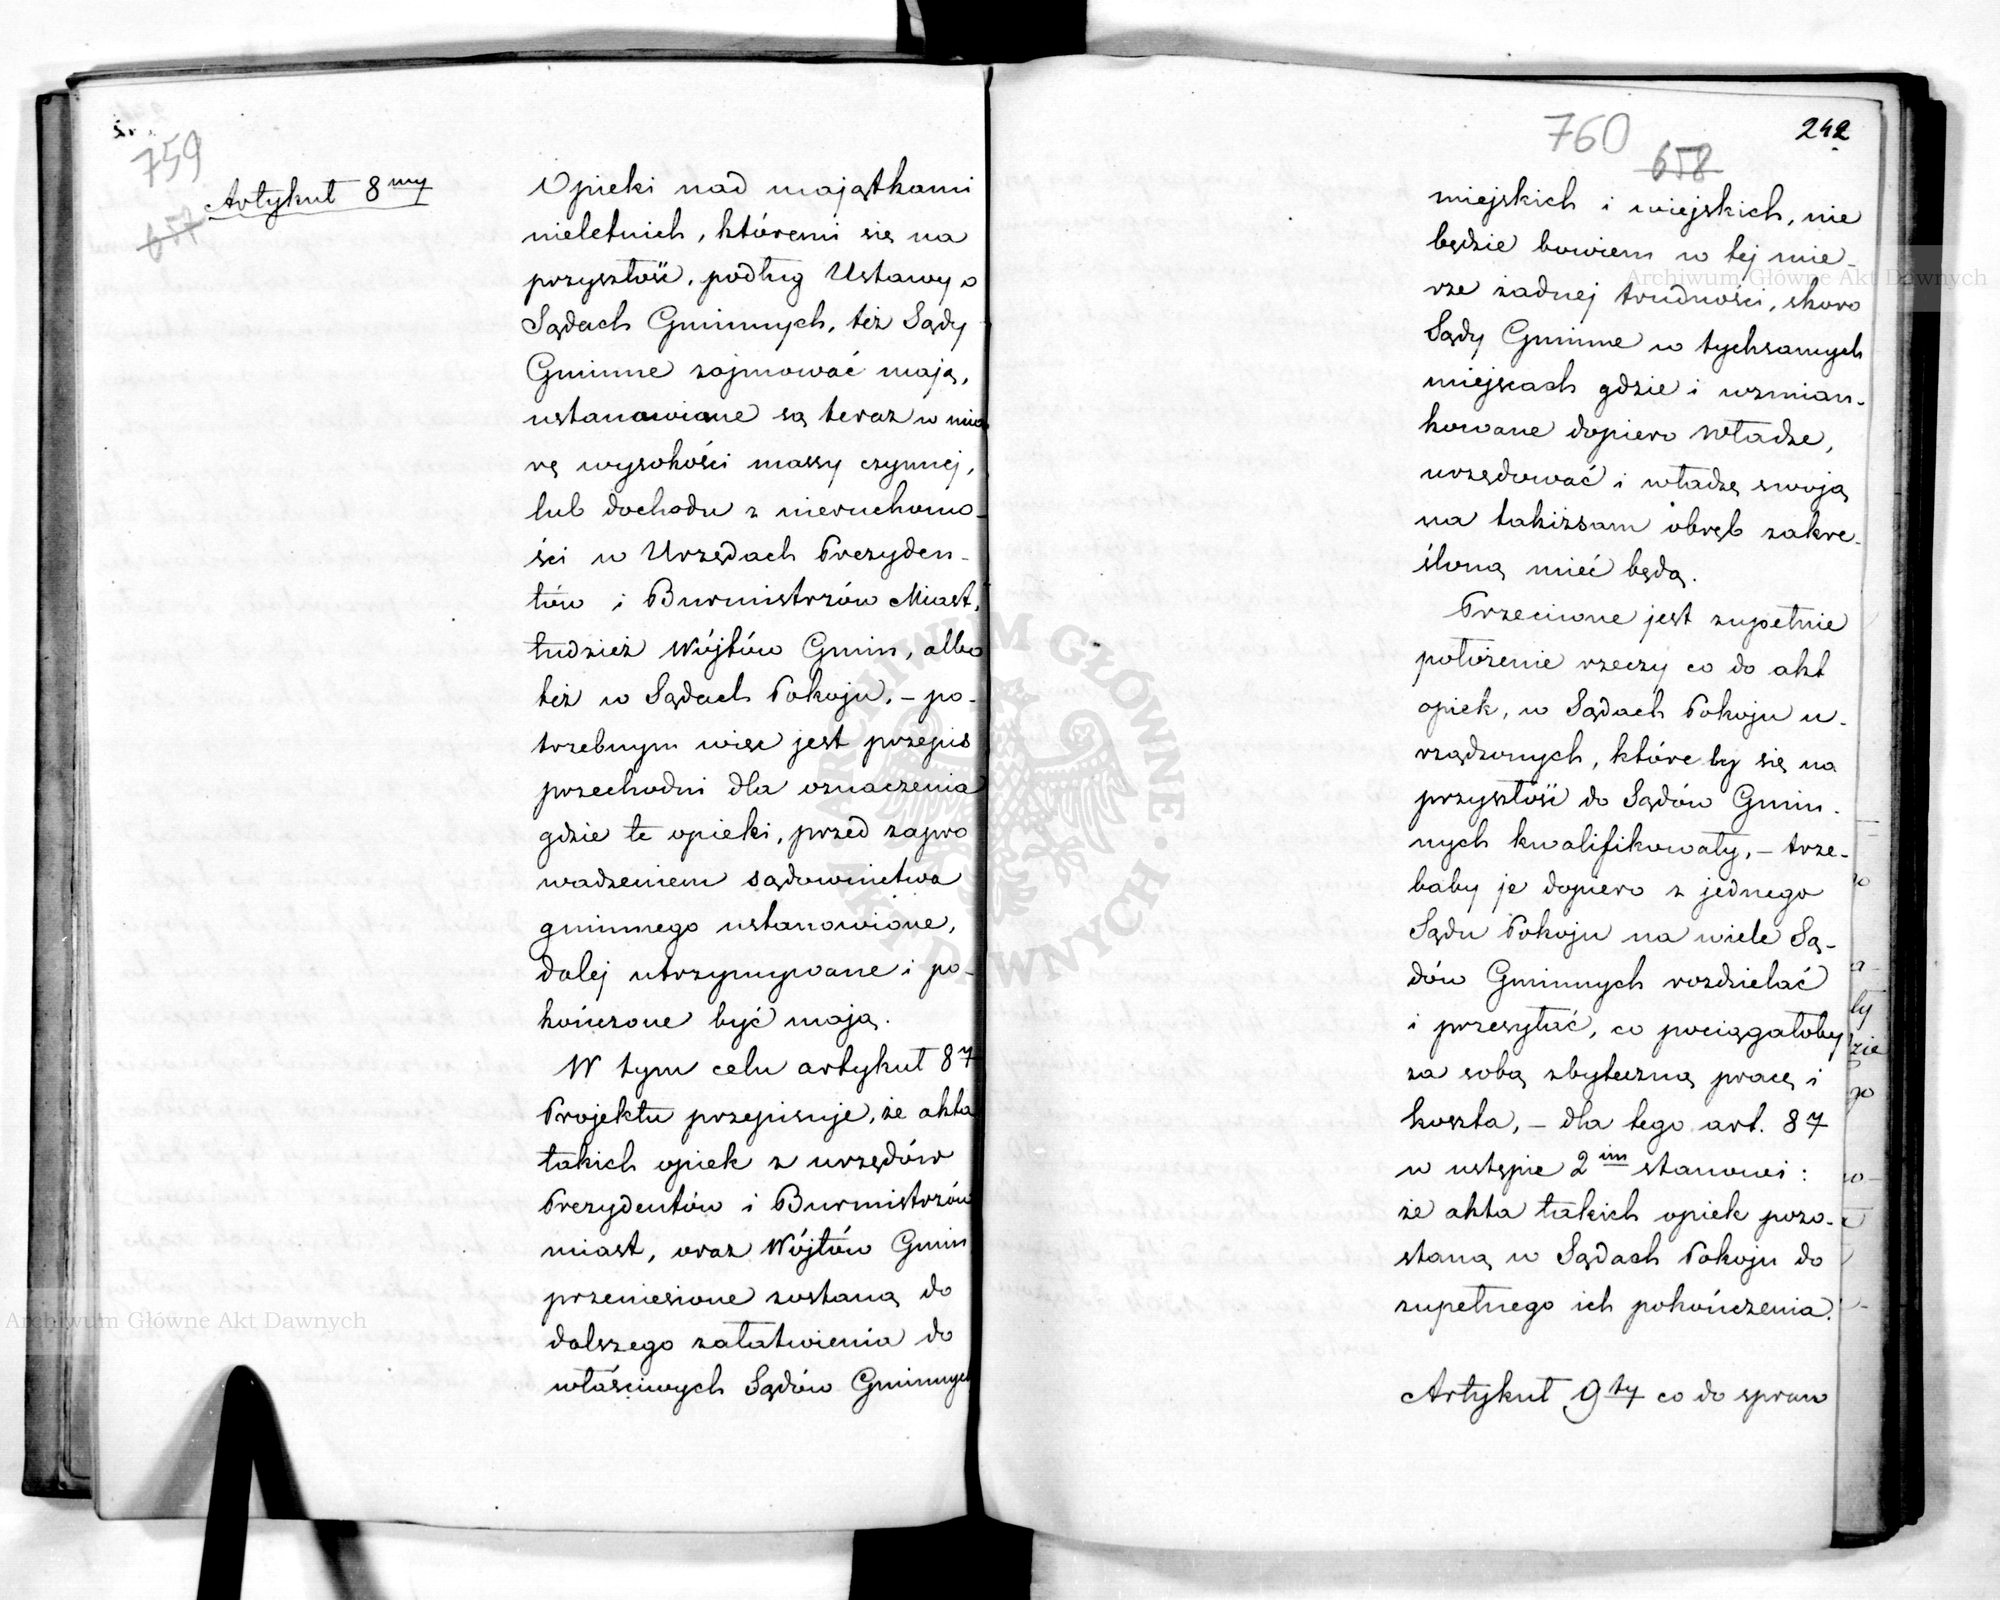 759
657
Artykuł 8my
Opieki nad majątkami
nieletnich, któremi się na
przyszłość, podług Ustawy o
Sądach Gminnych, też Sądy
Gminne zajmować mają,
ustanowione są teraz w mia
rę wysokości massy czynnej,
lub dochodu z nieruchomo-
ści w Urzędach Prezyden-
tów i Burmistrzów Miast,
tudzież Wójtów Gmin, albo
też w Sądach Pokoju, – po-
trzebnym więc jest przepis
przechodni dla oznaczenia
gdzie te opieki, przed zapro
wadzeniem sądownictwa
gminnego ustanowione,
dalej utrzymywane i po-
kończone być mają.
W tym celu artykuł 87
Projektu przepisuje, że akta
takich opiek z urzędów
Prezydentów i Burmistrzów
miast, oraz Wójtów Gmin
przeniesione zostaną do
dalszego załatwienia do
właściwych Sądów Gminnych
760
658
242
miejskich i wiejskich, nie
będzie bowiem w tej mie-
rze żadnej trudności, skoro
Sądy Gminne w tychsamych
miejscach gdzie i wzmian-
kowane dopiero władze,
urzędować i władzę swoją
na takiżsam obręb zakre-
śloną mieć będą.
Przeciwne jest zupełnie
położenie rzeczy co do akt
opiek, w Sądach Pokoju u-
rządzonych, które by się na
przyszłość do Sądów Gmin-
nych kwalifikowały, – trze-
baby je dopiero z jednego
Sądu Pokoju na wiele Są-
dów Gminnych rozdzielać
i przesyłać, co pociągałoby
za sobą zbyteczną pracę i
koszta, – dla tego art. 87
w ustępie 2im stanowi:
że akta takich opiek pozo-
staną w Sądach Pokoju do
zupełnego ich pokończenia.
Artykuł 9ty co do spraw
Archiwum Główne Akt Dawnych
Archiwum Główne Akt Dawnych
ARCHIWUM GŁÓWNE AKT DAWNYCH